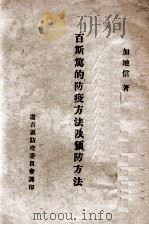 加地信 著
百斯篤的防疫方法及預防方法
遼吉區防疫委員會譯印